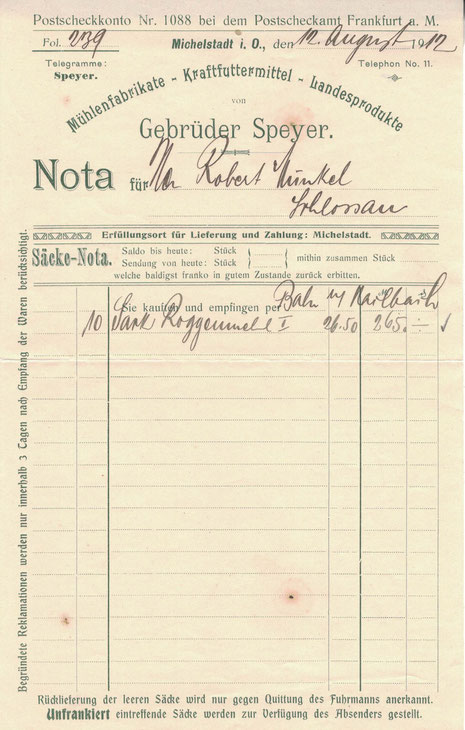 Postscheckkonto Nr. 1088 bei dem Postscheckamt Frankfurt a. M.
Fol. 239 Michelstadt i. O., den 12. August 1912
Telegramme: Speyer. Telephon No. 11.
Mühlenfabrikate - Kraftfuttermittel - Landesprodukte
von
Gebrüder Speyer.
Nota für Robert Munkel
Schlossau
Erfüllungsort für Lieferung und Zahlung: Michelstadt.
Säcke-Nota. Saldo bis heute: Stück
Sendung von heute: Stück mithin zusammen Stück
welche baldigst franko in gutem Zustande zurück erbitten.
Sie kauften und empfingen per Bahn Kailbach
10 Sack Roggenmehl I 26.50 265.-
Begründete Reklamationen werden nur innerhalb 3 Tagen nach Empfang der Waren berücksichtigt.
Rücklieferung der leeren Säcke wird nur gegen Quittung des Fuhrmanns anerkannt.
Unfrankiert eintreffende Säcke werden zur Verfügung des Absenders gestellt.